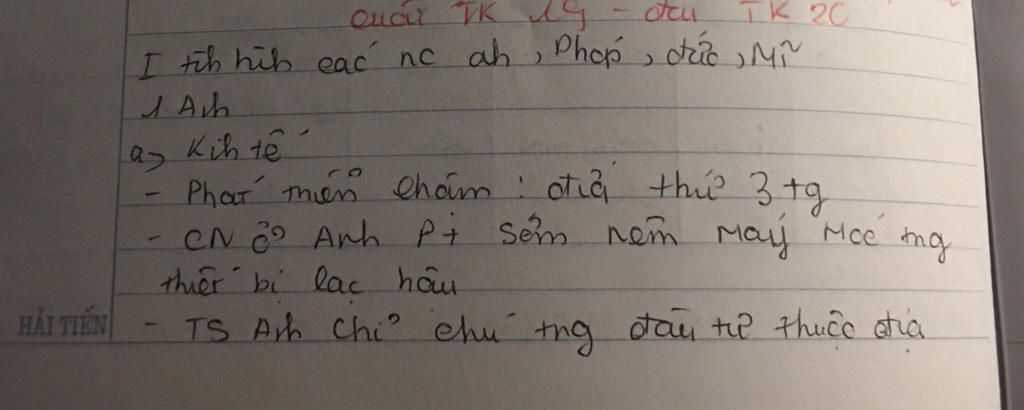 cuối TK 19 - đầu TK 20
I tìh hìh các nc ah, Pháp, đức, Mĩ
1 Anh
a> Kih tế
- Phát miển chậm : đứg thứ 3 tg
- CN ở Anh Pt sớm nêm máy móc mg
thiết bị lạc hâu
HẢI TIẾN
- TS Anh chỉ chú tmg đầu tư thuộc địa